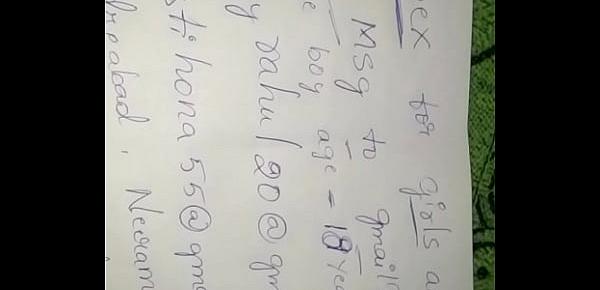 ex for girls a
Msg to gmail
e boy age = 18 yea
y rahul 20@gm
sti hona 55@gma
abad, Newam